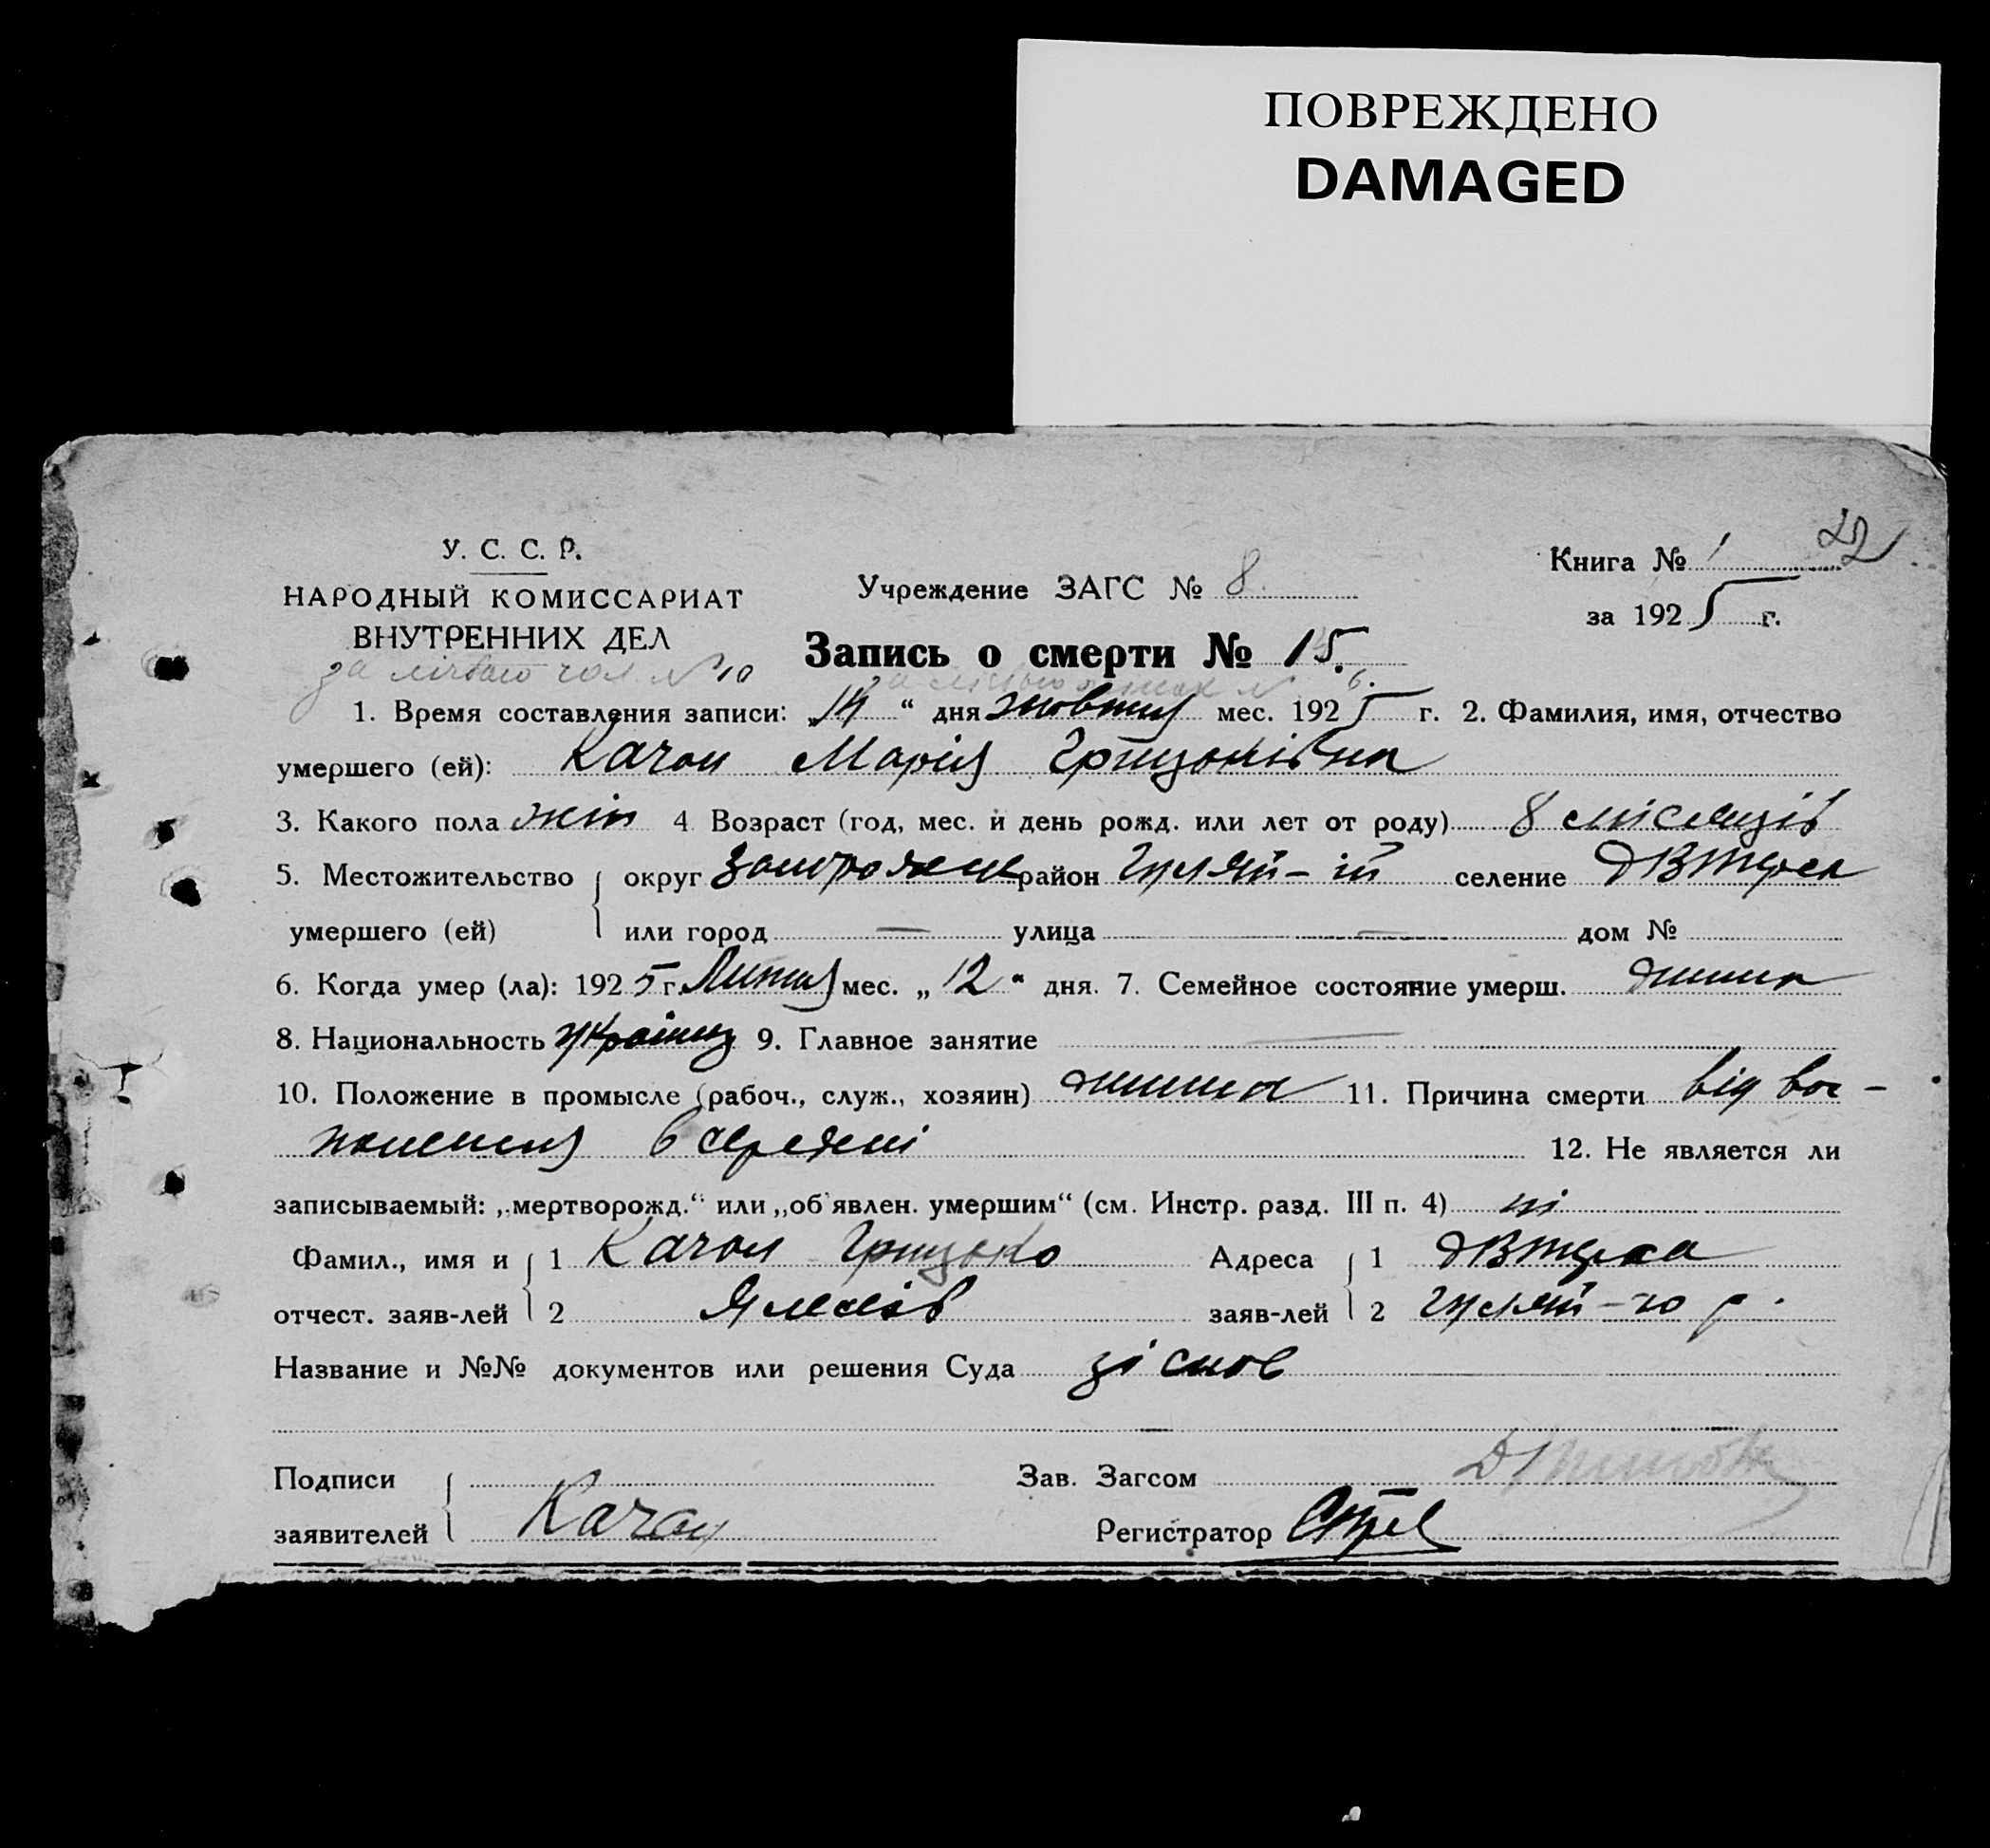 ПОВРЕЖДЕНО
DAMAGED
У. С. С. Р.
НАРОДНЫЙ КОМИССАРИАТ
ВНУТРЕННИХ ДЕЛ
Учреждение ЗАГС № 8
Книга № 1 22
за 1925 г.
Запись о смерти № 15.
за лічбою чол. № 10
1. Время составления записи: „14“ дня жовтня мес. 1925 г. 2. Фамилия, имя, отчество
умершего (ей): Качан Марія Грицьківна
3. Какого пола жін 4 Возраст (год, мес. и день рожд. или лет от роду) 8 місяців
5. Местожительство округ Запорожське район Гуляй-ій селение
умершего (ей) или город — улица — дом №
6. Когда умер (ла): 1925 г. Липня мес. „12“ дня. 7. Семейное состояние умерш. дитина
8. Национальность Україн 9. Главное занятие —
10. Положение в промысле (рабоч., служ., хозяин) дитина 11. Причина смерти від вос-
палення в середині 12. Не является ли
записываемый: „мертворожд.“ или „об'явлен. умершим“ (см. Инстр. разд. III п. 4) ні
Фамил., имя и 1 Качан Грицько Адреса 1
отчест. заяв-лей 2 заяв-лей 2 Гуляй-го р.
Название и №№ документов или решения Суда зі слов
Подписи Зав. Загсом
заявителей Качан Регистратор